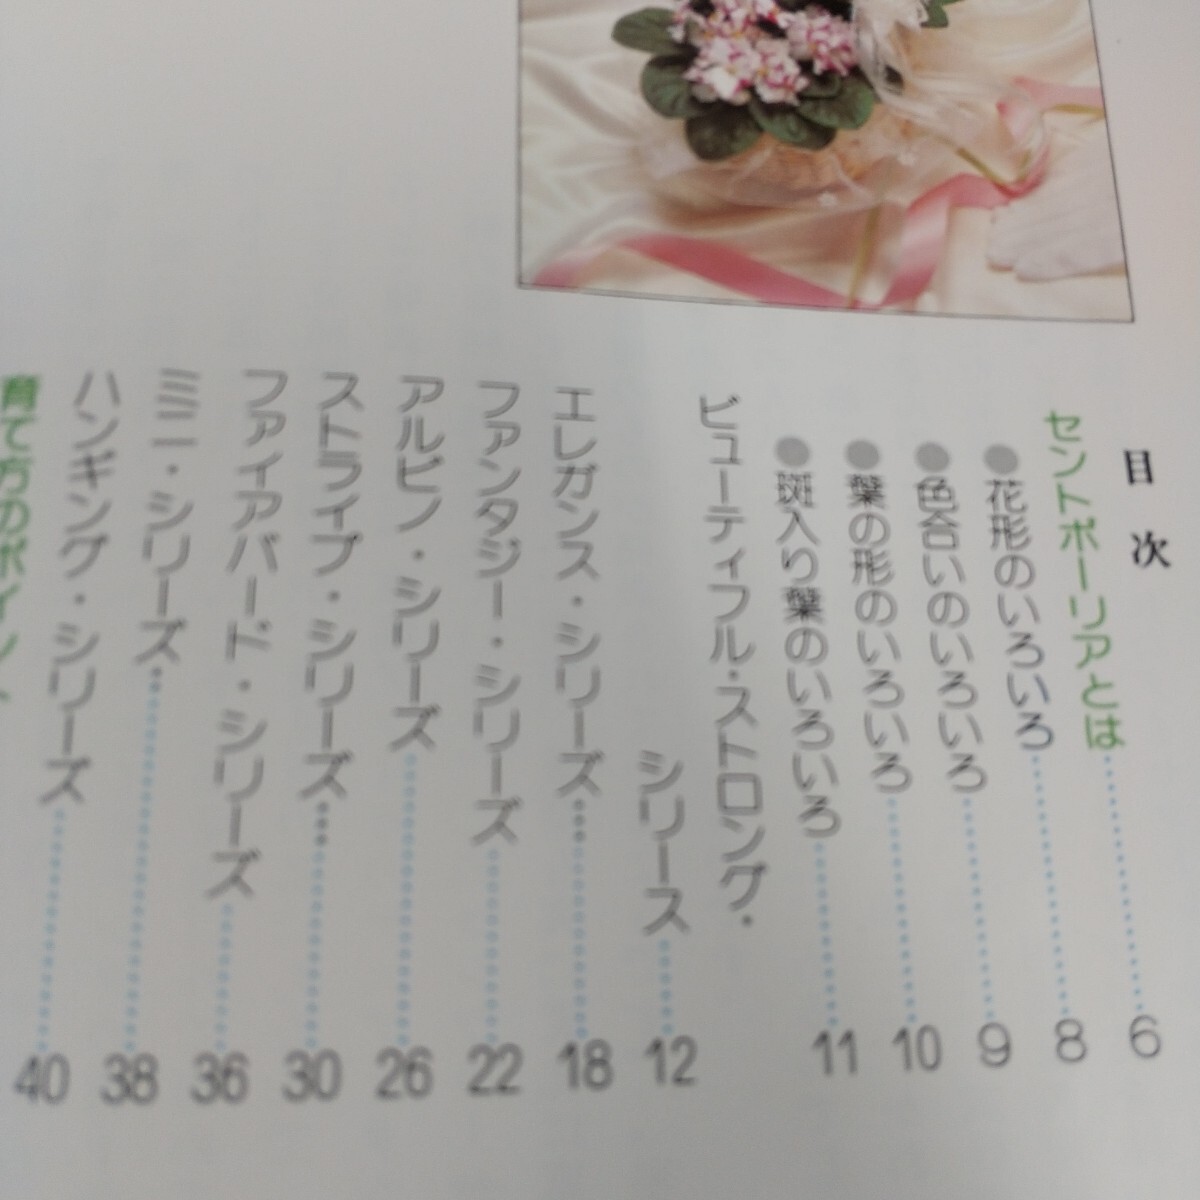 目次
セントポーリアとは……6
●花形のいろいろ……8
●色合いのいろいろ……9
●葉の形のいろいろ……10
●斑入り葉のいろいろ……11
ビューティフル・ストロング・
シリーズ……12
エレガンス・シリーズ……18
ファンタジー・シリーズ……22
アルビノ・シリーズ……26
ストライプ・シリーズ……30
ファイアバード・シリーズ……36
ミニ・シリーズ……38
ハンギング・シリーズ……40
育て方のポイント